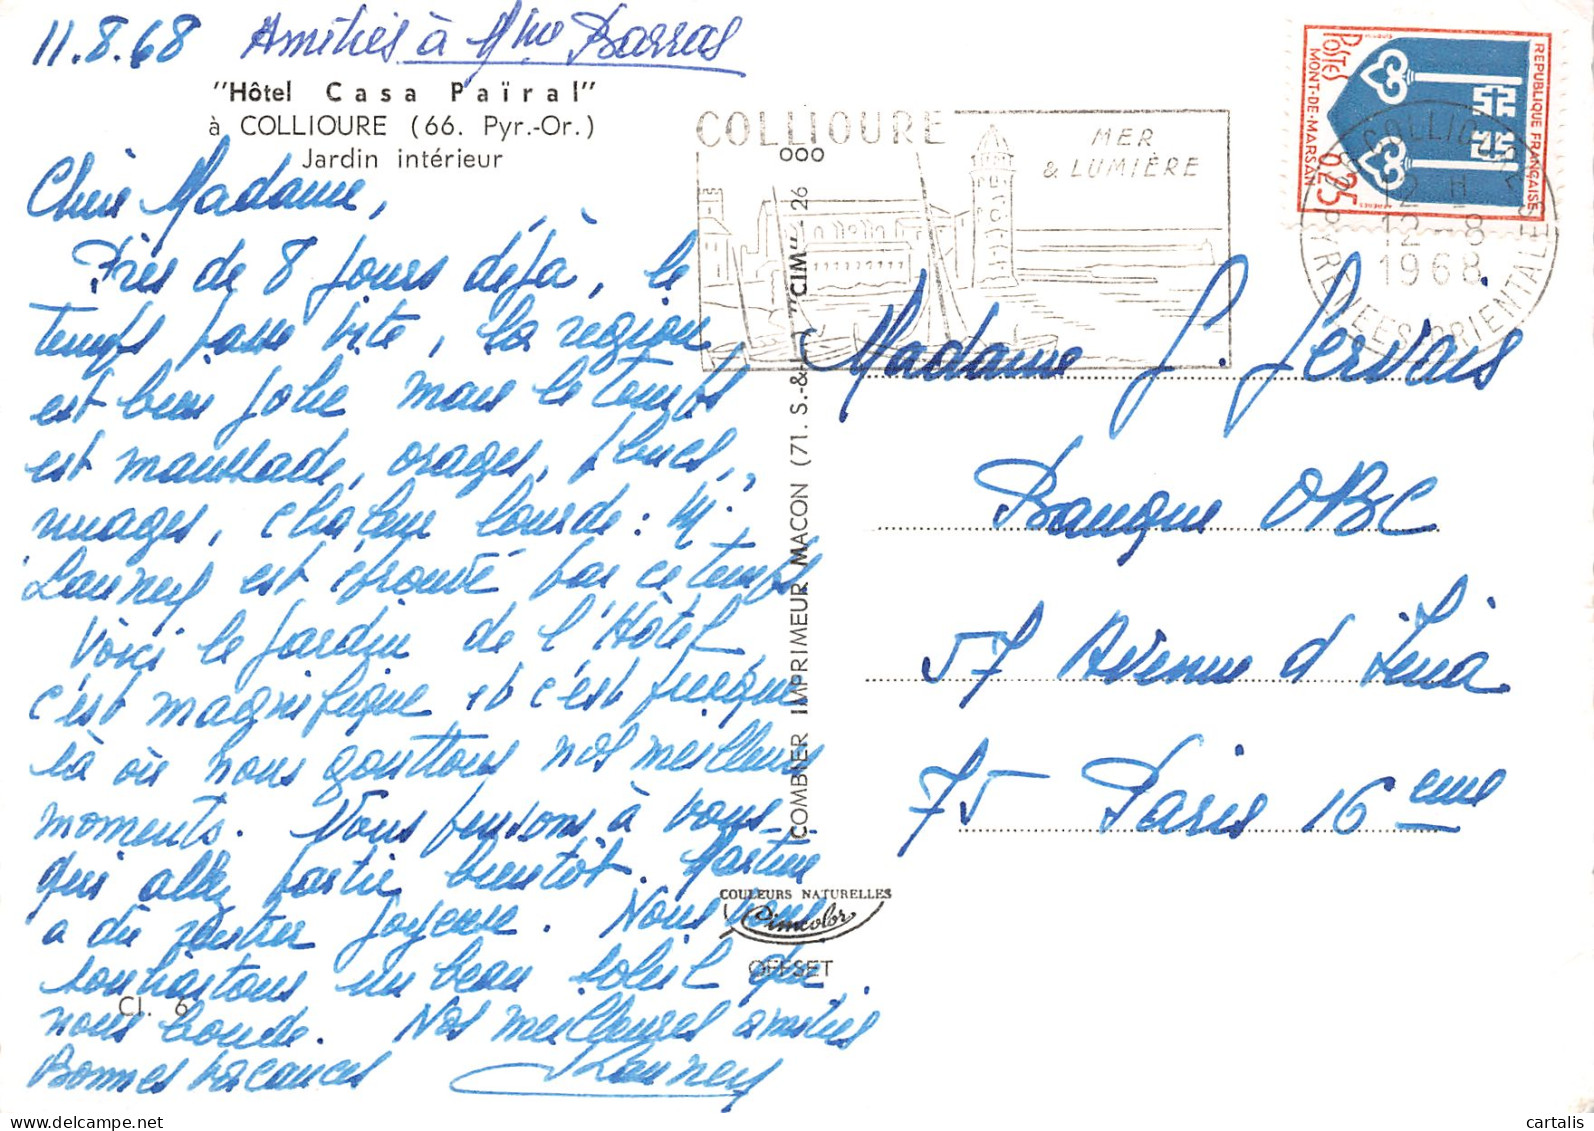 11.8.68 Amitiés à Mme Barras
"Hôtel Casa Païral"
à COLLIOURE (66. Pyr.-Or.)
Jardin intérieur
Chère Madame,
Près de 8 jours déjà, le
temps passe vite, la région
est bien jolie mais le temps
est maussade, orages, pluies,
nuages, chaleur lourde : M.
Launey est éprouvé par ce temps
Voici le jardin de l'Hôtel
c'est magnifique et c'est presque
là où nous gouttons nos meilleurs
moments. Nous pensons à vous
qui allez partir bientôt. Martine
a dû rentrer joyeuse. Nous vous
souhaitons un beau soleil qui
nous boude. Nos meilleures amitiés
Bonnes vacances Launey
Cl. 6
COMBIER IMPRIMEUR MACON (71. S.-&-L.) "CIM" - 26
COULEURS NATURELLES
Cimcolor
OFFSET
COLLIOURE
MER
& LUMIÈRE
REPUBLIQUE FRANÇAISE
POSTES
MONT-DE-MARSAN
0,25
COLLIOURE
12 H
12-8
1968
PYRENEES ORIENTALES
Madame G. Gervais
Banque OBC
57 Avenue d'Iéna
75 Paris 16eme
cartalis
www.delcampe.net